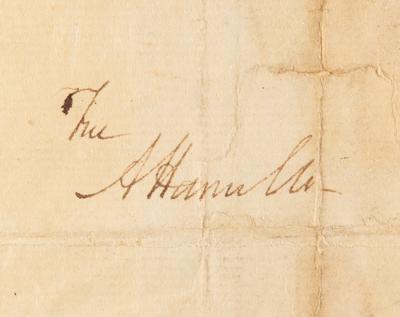 True
A Hamilton